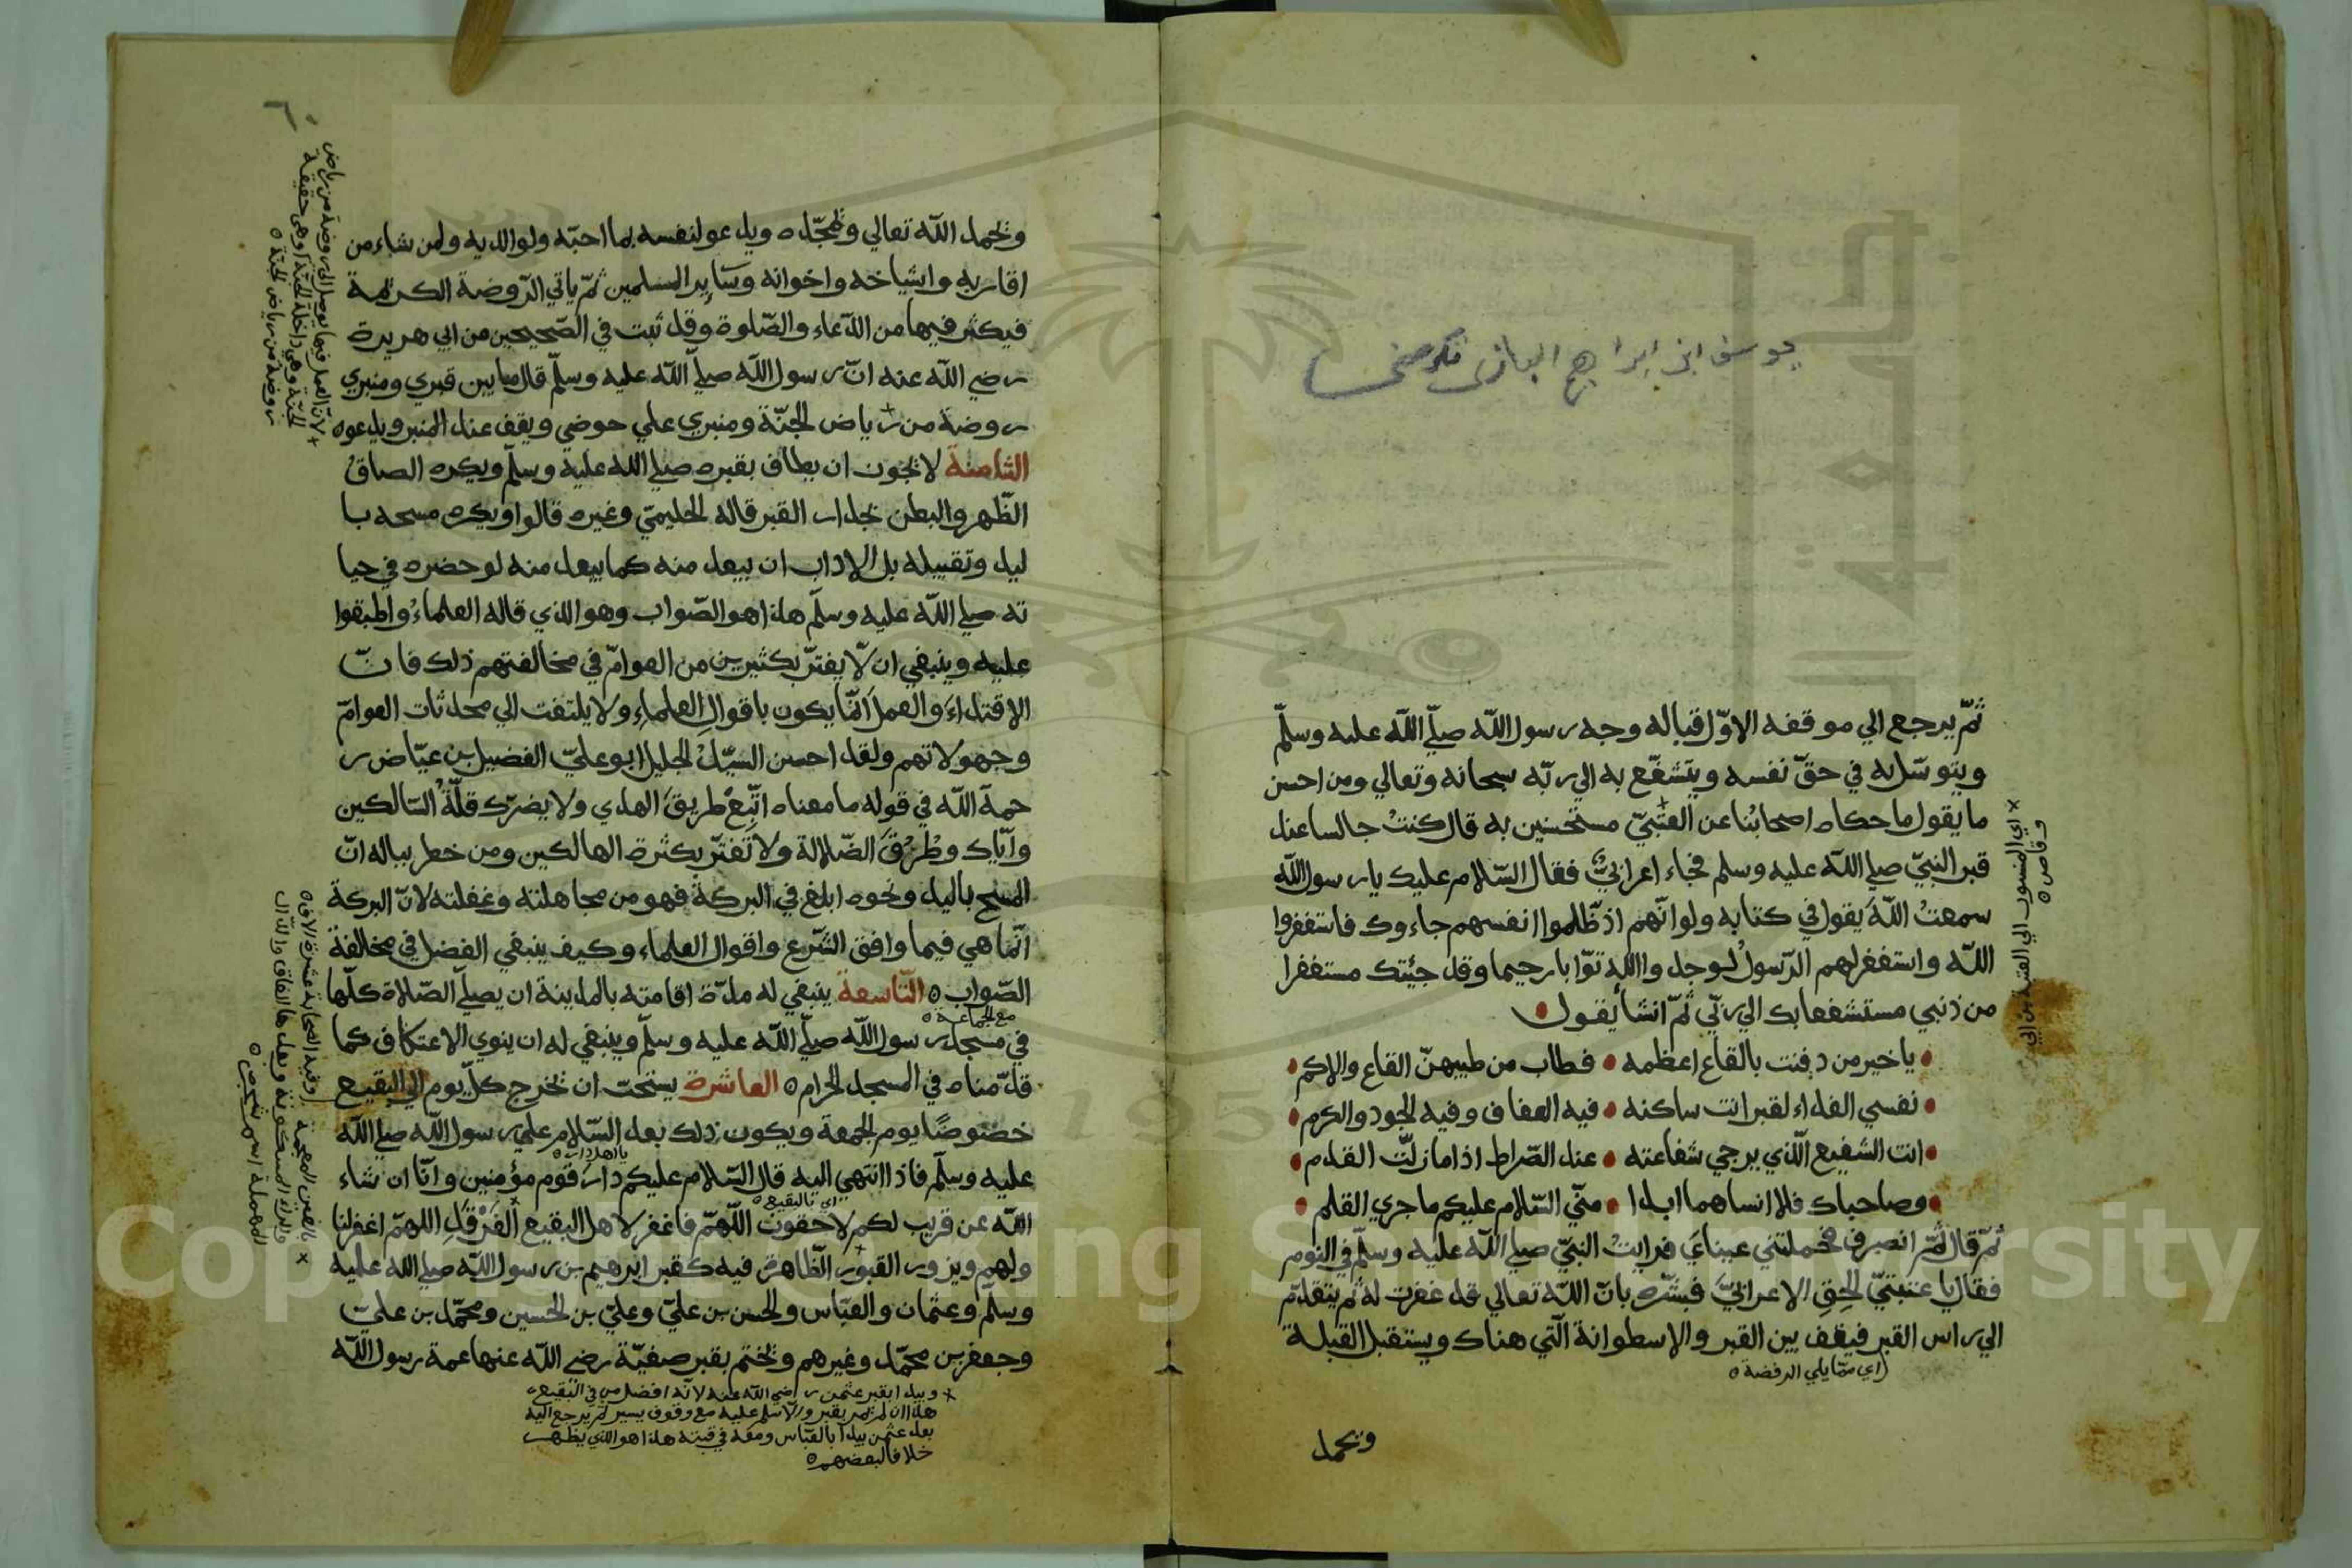 ثمّ يرجع الي موقفه الاوّل قبالة وجه رسول اللّه صلّي اللّه عليه وسلّم
ويتوسّل به في حقّ نفسه ويتشفّع به الي ربّه سبحانه وتعالي ومن احسن
ما يقول ما حكاه اصحابُنا عن العتبيّ مستحسنين به قال كنتُ جالسا عند
قبر النبيّ صلي اللّه عليه وسلم فجاء اعرابيٌّ فقال السّلام عليك يا رسول اللّه
سمعتُ اللّهَ يقول في كتابه ولو انّهم اذ ظّلموا انفسهم جاءوك فاستغفروا
اللّه واستغفر لهم الرّسولُ لوجدوا اللّه توّابا رحيما وقد جئتك مستغفرا
من ذنبي مستشفعا بك الي ربّي ثمّ انشأ يقول
يا خير من دفنت بالقاع اعظمه • فطاب من طيبهنّ القاع والاكم
نفسي الفداء لقبر انت ساكنه • فيه العفاف وفيه الجود والكرم
انت الشفيع الّذي يرجي شفاعته • عند الصّراط اذا ما زلّت القدم
وصاحباك فلا انساهما ابدا • منّي السّلام عليكم ما جري القلم
ثمّ قال ثمّ انصرف فحملتني عيناي فرايتُ النبيّ صلي اللّه عليه وسلّم في النوم
فقال يا عتبيّ الحق الاعرابيّ فبشّره بانّ اللّه تعالي قد غفر له ثم يتقدّم
الي راس القبر فيقف بين القبر والاسطوانة الّتي هناك ويستقبل القبلة
اي ممّا يلي الرفضة
ويحمد
اي المنسوب الي العتبة بن ابي
وقاص
ويحمد اللّه تعالي ويمجّده ويدعو لنفسه بما احبّه ولوالديه ولمن شاء من
اقاربه واشياخه واخوانه وسَاير المسلمين ثمّ ياتي الرّوضة الكريمة
فيكثر فيها من الدّعاء والصّلوة وقد ثبت في الصّحيحين من ابي هريرة
رضي اللّه عنه انّ رسول اللّه صلّي اللّه عليه وسلّم قال ما بين قبري ومنبري
روضة من رياض الجنّة ومنبري علي حوضي ويقف عند المنبر ويدعو
الثامنة لا يجوز ان يطاف بقبره صلي اللّه عليه وسلّم ويكره الصاقُ
الظّهر والبطن بجدار القبر قاله الحليميّ وغيره قالوا ويكره مسحه با
ليد وتقبيله بل الاداب ان يبعد منه كما يبعد منه لو حضره في حيا
ته صلي اللّه عليه وسلّم هذا هو الصّواب وهو الذي قاله العلماءُ واطبقوا
عليه وينبغي ان لّا يغترّ بكثيرين من العوامّ في مخالفتهم ذلك فانّ
الاقتداءَ والعملَ انّما يكون باقوالِ العلماءِ ولا يلتفت الي محدثات العوامّ
وجهولاتهم ولقد احسن السيّدُ الجليل ابو عليّ الفضيل بن عيّاض ر
حمه اللّه في قوله ما معناه اتّبِعْ طريقَ الهدي ولا يضرّك قلّةُ السّالكين
وايّاك وطُرُقَ الضّلالة ولا تغترّ بكثرة الهالكين ومن خطر بباله انّ
المسح باليد ونحوه ابلغ في البركة فهو من مجاهلته وغفلته لانّ البركة
انّما هي فيما وافق الشّرع واقوال العلماء وكيف ينبغي الفضل في مخالفة
الصّواب التّاسعة ينبغي له مدّة اقامته بالمدينة ان يصلّي الصّلاة كلّها
مع الجماعة
في مسجد رسول اللّه صلّي اللّه عليه وسلّم وينبغي له ان ينوي الاعتكاف كما
قدّمناه في المسجد الحرام العاشرة يستحبّ ان يخرج كلّ يوم الي البقيع
خصوصًا يوم الجمعة ويكون ذلك بعد السّلام علي رسول اللّه صلي اللّه
عليه وسلّم فاذا انتهي اليه قال السّلام عليكم دارَ قوم مؤمنين وانّا ان شاء
اي بالبقيع
اللّه عن قريب لكم لاحقون اللّهمّ فاغفر لاهل البقيع الغَرْقَدِ اللهمّ اغفر لنا
ولهم ويزور القبور الظّاهرة فيه كقبر ابرهيم بن رسول اللّه صلي اللّه عليه
وسلّم وعثمان والعبّاس والحسن بن عليّ وعليّ بن الحسين ومحمّد بن عليّ
وجعفر بن محمّد وغيرهم ويختم بقبر صفيّة رضي اللّه عنها عمة رسول اللّه
ويبدا بقبر عثمن رضي اللّه عنه لانّه افضل من في البقيع
هذا ان لم يمر بقبر والّا سلم عليه مع وقوف يسير ثم يرجع اليه
بعد عثمن يبدا بالعبّاس ومعه في قبته هذا هو الذي يظهر
خلافا لبعضهم
لانّ العمل فيها يوصل الي روضة من رياض
الجنّة وهي داخلة الجنّة اوهي حقيقة
روضة من رياض الجنّة
المهملة اسم شجر
Copyright © King Saud University